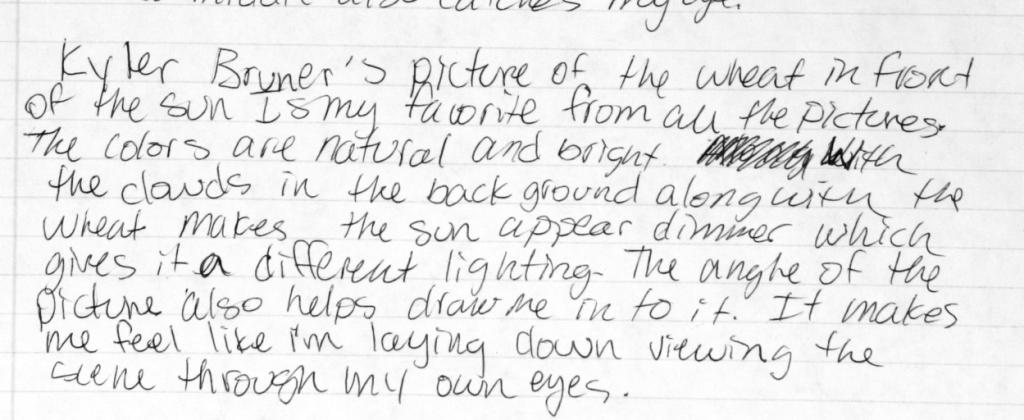 a miniature also catches my eye.
Kyler Bruner's picture of the wheat in front
of the sun Is my favorite from all the pictures.
The colors are natural and bright. With
the clouds in the back ground along with the
wheat makes the sun appear dimmer which
gives it a different lighting. The angle of the
picture also helps draw me in to it. It makes
me feel like i'm laying down viewing the
scene through my own eyes.